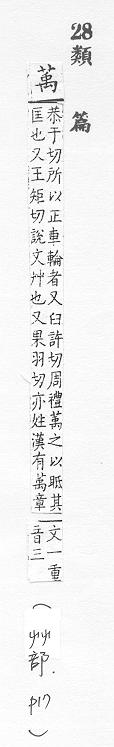 28類篇
萭
恭于切所以正車輪者又臼許切周禮萭之以眡其
匡也又王矩切說文艸也又果羽切亦姓漢有萭章
文一重
音三
(艸部. p17)